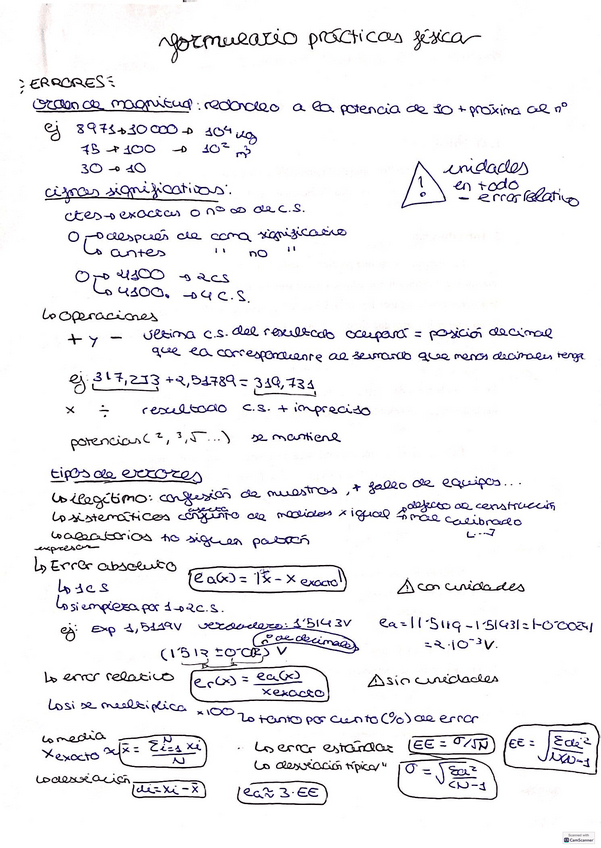 formulario prácticas física
ERRORES:
orden de magnitud: redondeo a la potencia de 10 + próxima al nº
ej 8971 → 10000 → 10⁴ kg
75 → 100 → 10² m³
30 → 10
! unidades
en todo
- error relativo
cifras significativas:
ctes → exactas o nº ∞ de C.S.
0 → después de coma significativo
↳ antes " no "
0 → 4100 → 2CS
↳ 4100. → 4 C.S.
↳ operaciones
+ y - última c.s. del resultado ocupará = posición decimal
que la correspondiente al sumando que menos decimales tenga
ej: 317,213 + 2,51789 = 319,731
× ÷ resultado c.s. + impreciso
potencias (², ³, √ ...) se mantiene
tipos de errores
↳ ilegítimo: confusión de muestras, + fallo de equipos...
↳ sistemáticos conjunto de medidas x igual → defecto de construcción
→ mal calibrado
(...)
↳ aleatorios no siguen patrón
expresar
↳ Error absoluto ea(x) = |x - x exacto| ! con unidades
↳ 1 CS
↳ si empieza por 1 → 2 C.S.
ej: Exp 1,5119V verdadero: 1'5143V ea = |1'5119 - 1'5143| = |-0'0024|
= 2·10⁻³ V.
nº de decimales
(1'512 ± 0'002) V
↳ error relativo er(x) = ea(x) / x exacto ! sin unidades
↳ si se multiplica x100 ↳ tanto por ciento (%) de error
↳ media
x exacto ≈ x̄ = Σᴺi=1 xi / N
· ↳ error estándar EE = σ/√N EE = √(Σdi² / N(N-1))
↳ desviación típica " σ = √(Σdi² / (N-1))
↳ desviación di = xi - x̄ ea ≈ 3·EE
Scanned with
CamScanner